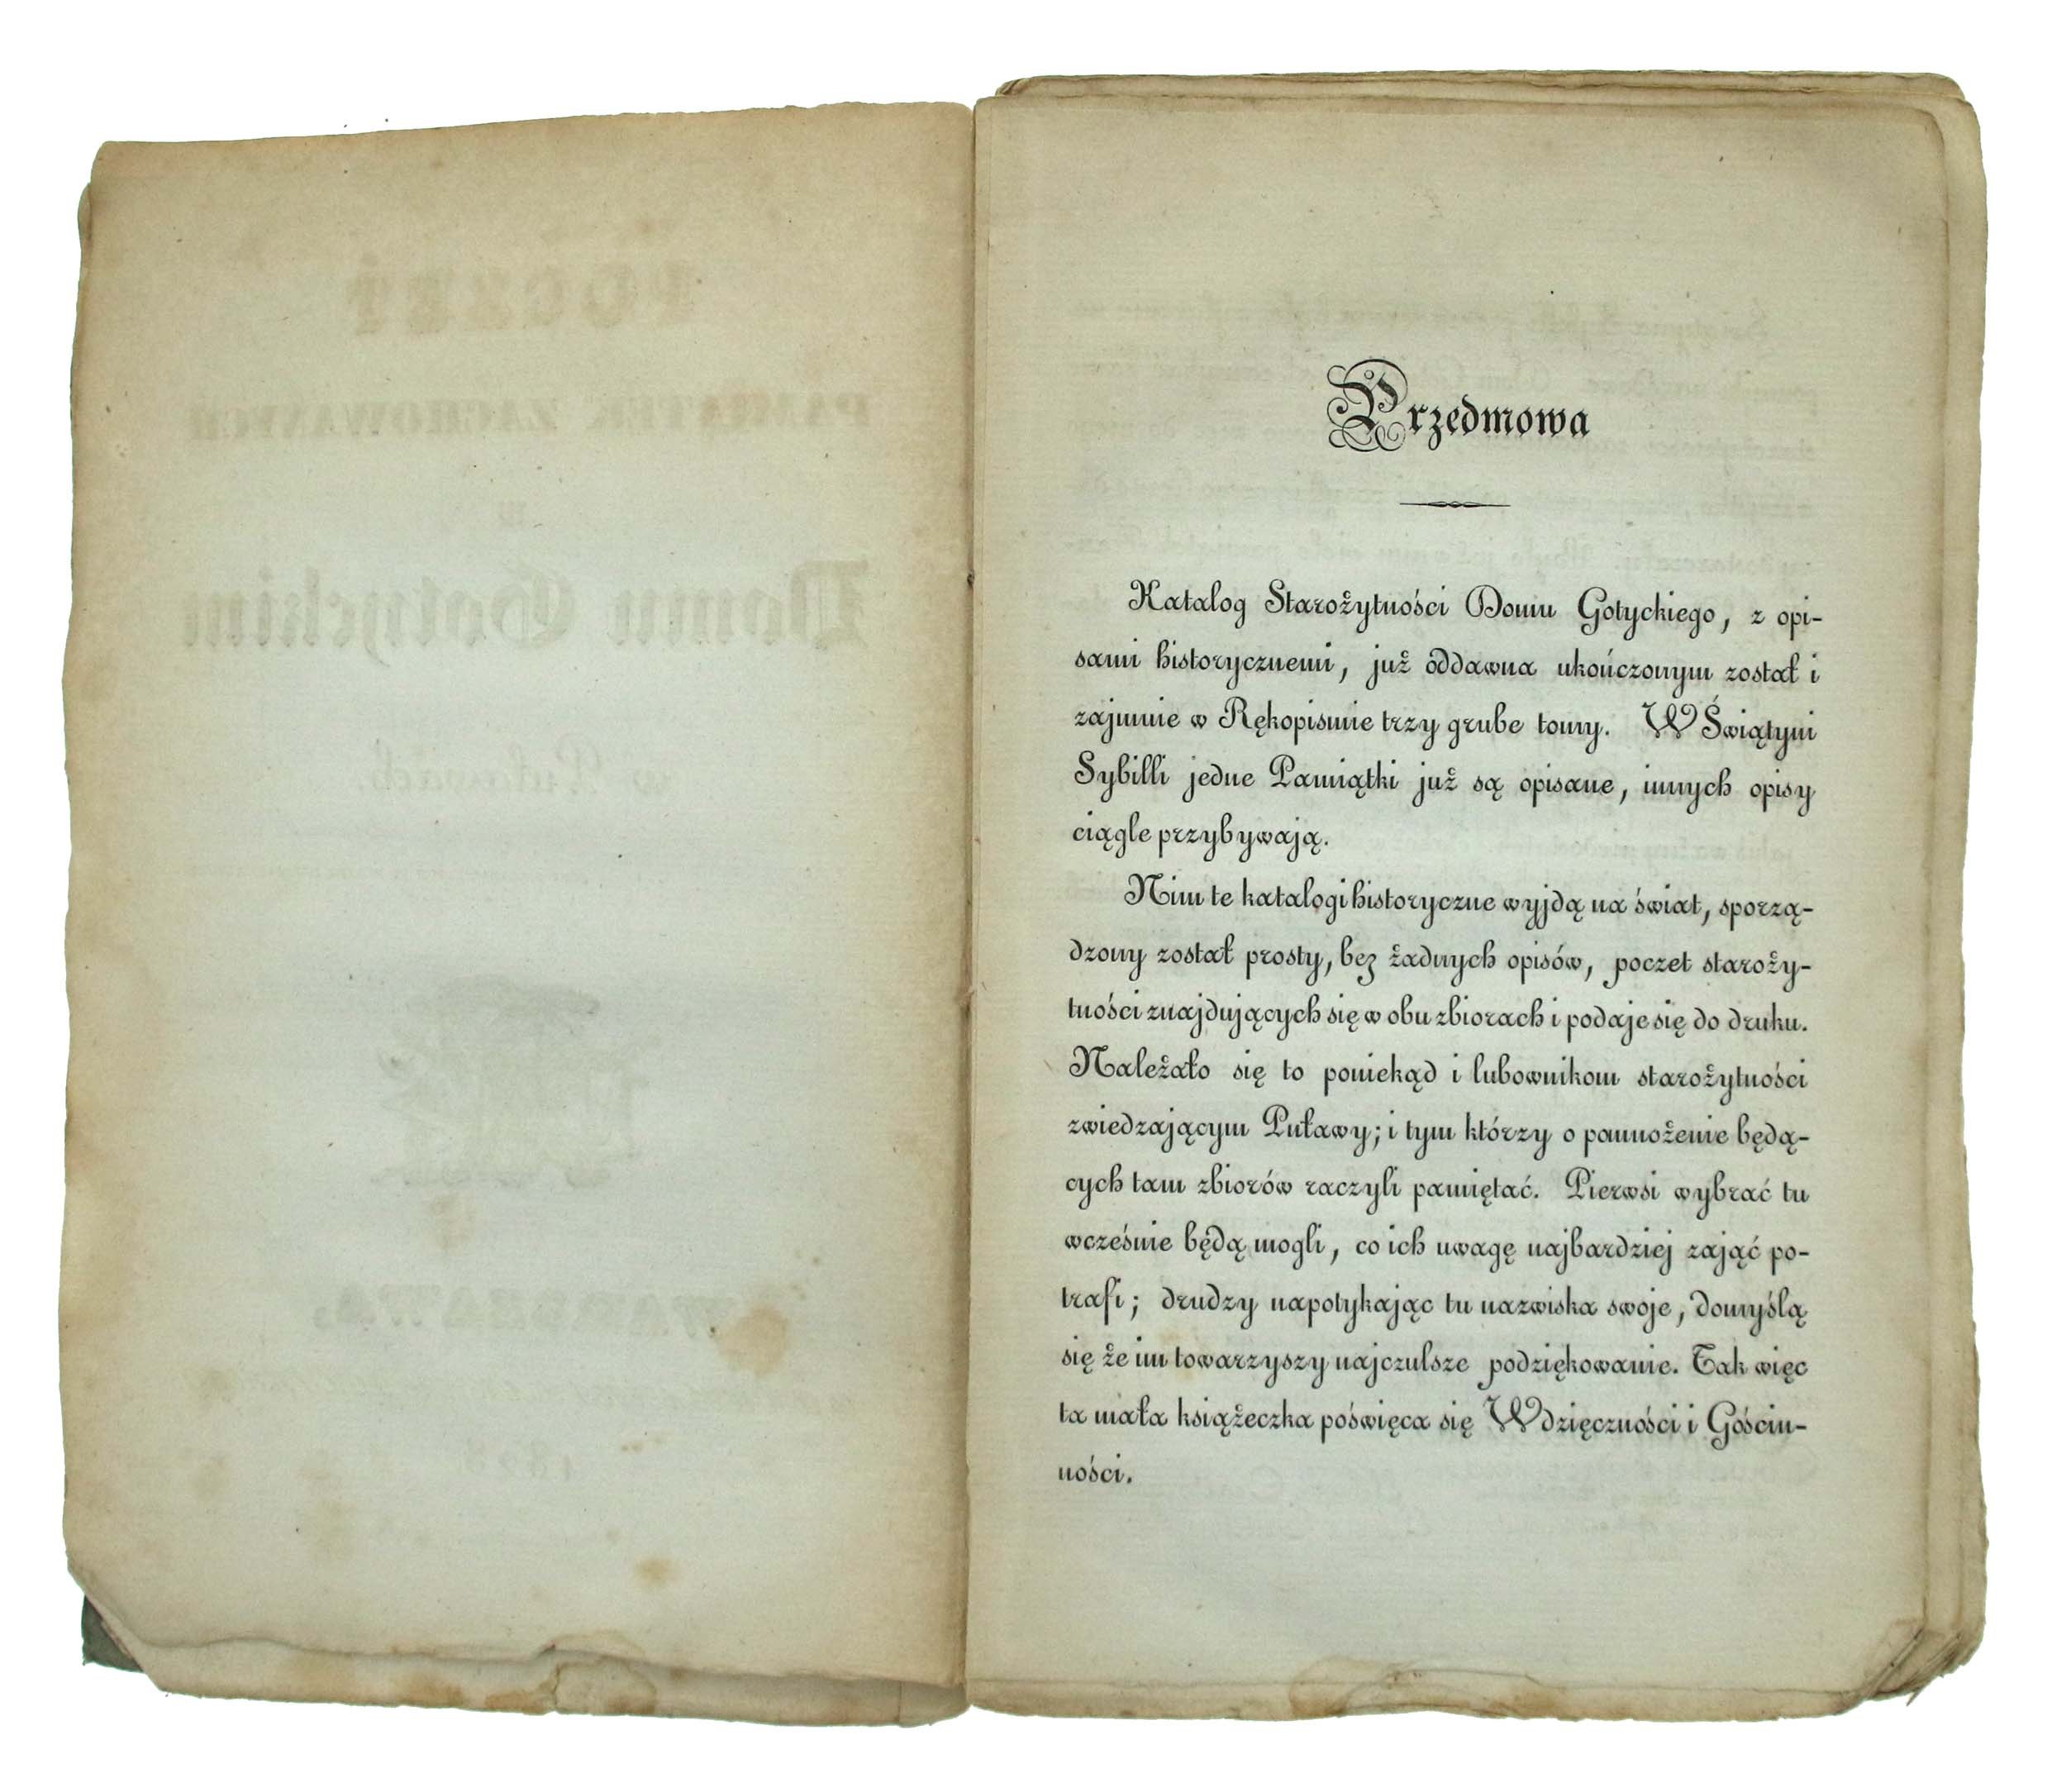 POCZET
PAMIĄTEK ZACHOWANYCH
w
Domu Gotyckim
w Puławach.
1828
Przedmowa
Katalog Starożytności Domu Gotyckiego, z opi-
sami historycznemi, już oddawna ukończonym został i
zajmnie w Rękopismie trzy grube tomy. W Świątyni
Sybilli jedne Pamiątki już są opisane, innych opisy
ciągle przybywają.
Nim te katalogi historyczne wyjdą na świat, sporzą-
dzony został prosty, bez żadnych opisów, poczet staroży-
tności znajdujących się w obu zbiorach i podaje się do druku.
Należało się to poniekąd i lubownikom starożytności
zwiedzającym Puławy; i tym którzy o pomnożenie będą-
cych tam zbiorów raczyli pamiętać. Pierwsi wybrać tu
wcześnie będą mogli, co ich uwagę najbardziej zająć po-
trafi; drudzy napotykając tu nazwiska swoje, domyślą
się że im towarzyszy najczulsze podziękowanie. Tak więc
ta mała książeczka poświęca się Wdzięczności i Gościn-
ności.